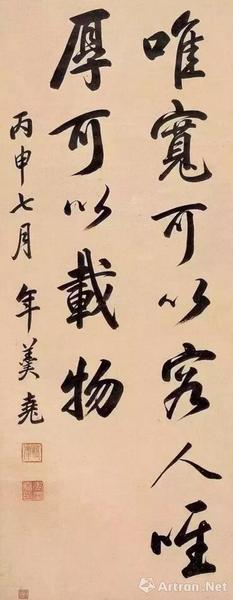 唯寬可以容人唯
厚可以載物
丙申七月 年羹堯
Artron.Net